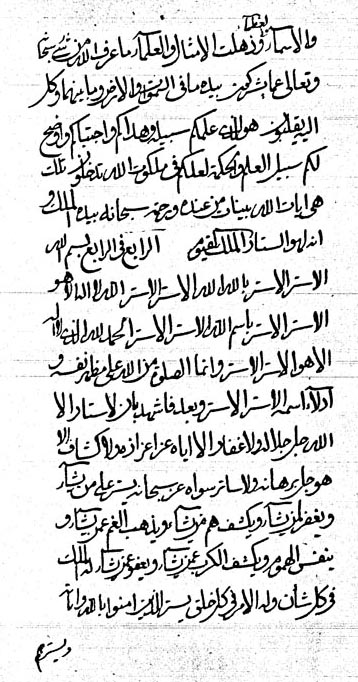 والاسماء وذهلت الامثال والعلماء ما عرف الله من شيء سبحانه
وتعالى عما يشركون بيده ما في السموات والارض وما بينهما وكل
اليه يقلبون هو الذي علمكم سبيله وهداكم واجتباكم واوضح
لكم سبيل العلم والحكمة لعلكم في ملكوت الله تدخلون تلك
هي ايات الله بينات من عنده ورحمة سبحانه بيده الملك و
انه لهو الستار الملك القيوم الرابع في الرابع بسم الله
الاستر الاستر بالله الله الاستر الاستر الله لا اله الا هو
الاستر الاستر باسم الله الاستر الاستر الحمد لله الذي لا اله
الا هو الاستر الاستر وانما الصلوة من الله على مظهر نفسه و
ادلاء اسمه الاستر الاستر وبعد فاشهد بان لا ستار الا
الله جل جلاله ولا غفار الا اياه عز اعزازه ولا كشاف الا
هو جل برهانه ولا ساتر سواه عز سبحانه يستر على من يشاء
ويغفر لمن يشاء ويكشف هم من يشاء ويذهب الغم عمن يشاء و
ينفس الهموم ويكشف الكرب عمن يشاء ويعفو عمن يشاء له الملك
في كل شان وله الامر في كل خلق يستر الذين امنوا بالله واياته
ويسترهم